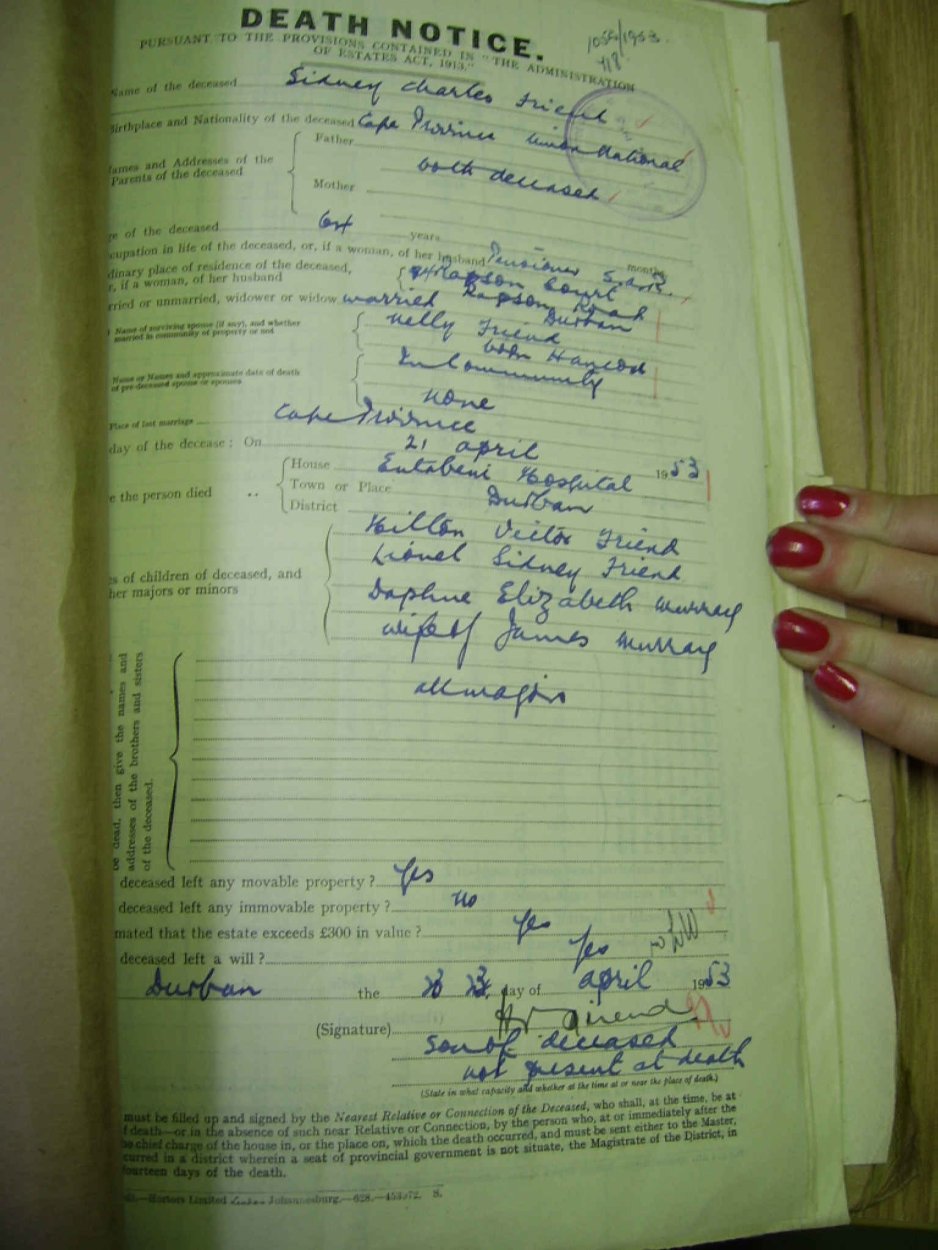 DEATH NOTICE.
PURSUANT TO THE PROVISIONS CONTAINED IN "THE ADMINISTRATION
OF ESTATES ACT, 1913."
Name of the deceased Sidney Charles Friend
Birthplace and Nationality of the deceased Cape Province Union National
Names and Addresses of the
Parents of the deceased
Father
both deceased
Mother
ge of the deceased 64 years months
cupation in life of the deceased, or, if a woman, of her husband Pensioner S.A.R.
dinary place of residence of the deceased,
r, if a woman, of her husband
Rapson Court
Rapson Road
Durban
rried or unmarried, widower or widow married
Name of surviving spouse (if any), and whether
married in community of property or not
Nelly Friend
born
In Community
Name or Names and approximate date of death
of pre-deceased spouse or spouses
None
Place of last marriage Cape Province
day of the decease: On 21 April 1953
e the person died
House Entabeni Hospital
Town or Place Durban
District
s of children of deceased, and
her majors or minors
Hilton Victor Friend
Lionel Sidney Friend
Daphne Elizabeth Murray
wife of James Murray
all majors
be dead, then give the names and
addresses of the brothers and sisters
of the deceased.
deceased left any movable property? Yes
deceased left any immovable property? No
mated that the estate exceeds £300 in value? Yes
deceased left a will? Yes
Durban the 23 day of April 1953
(Signature) Friend
Son of deceased
not present at death
(State in what capacity and whether at the time at or near the place of death.)
must be filled up and signed by the Nearest Relative or Connection of the Deceased, who shall, at the time, be at
f death—or in the absence of such near Relative or Connection, by the person who, at or immediately after the
e chief charge of the house in, or the place on, which the death occurred, and must be sent either to the Master,
curred in a district wherein a seat of provincial government is not situate, the Magistrate of the District, in
fourteen days of the death.
—Hortors Limited Johannesburg.—628.—453572. S.